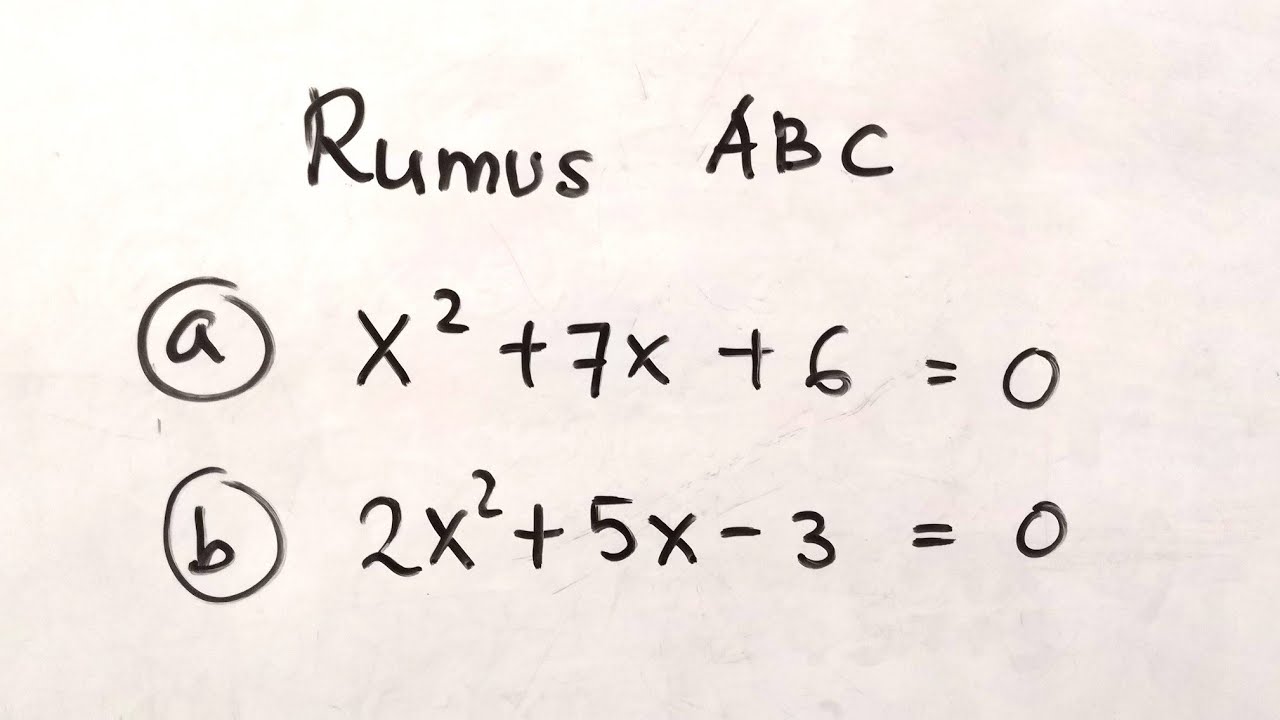 Rumus ABC
ⓐ x² + 7x + 6 = 0
ⓑ 2x² + 5x - 3 = 0